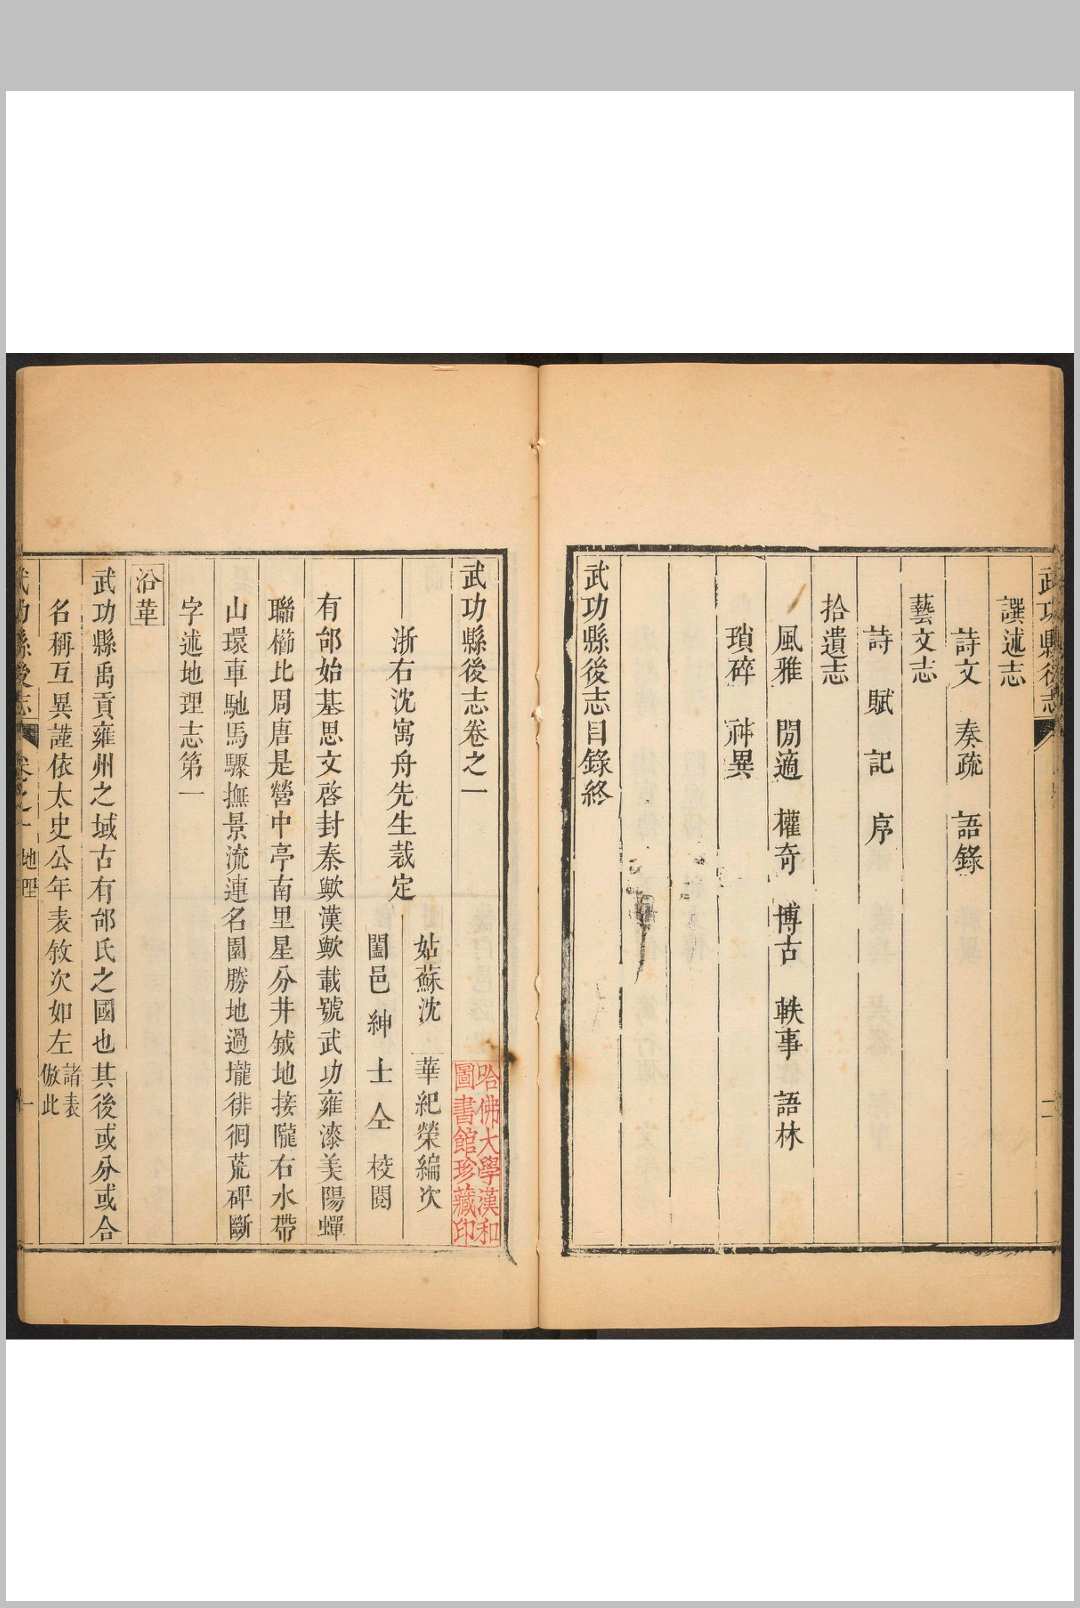 武功縣後志
二
譔述志
詩文 奏疏 語錄
藝文志
詩 賦 記 序
拾遺志
風雅 閒適 權奇 博古 軼事 語林
瑣碎 神異
武功縣後志目錄終
武功縣後志卷之一
哈佛大學漢和
圖書館珍藏印
姑蘇沈 華紀榮編次
浙右沈寓舟先生裁定
闔邑紳士仝校閱
有邰始基思文啓封秦歟漢歟載號武功雍漆美陽蟬
聯櫛比周唐是營中亭南里星分井鉞地接隴右水帶
山環車馳馬驟撫景流連名園勝地過壠徘徊荒碑斷
字述地理志第一
沿革
武功縣禹貢雍州之域古有邰氏之國也其後或分或合
名稱互異謹依太史公年表敘次如左諸表倣此
武功縣後志 卷之一 地理 一